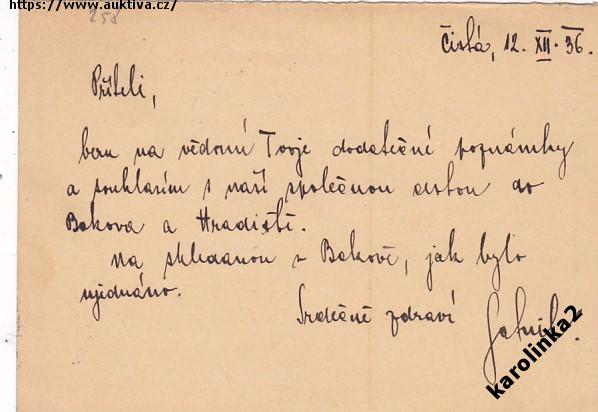 https://www.auktiva.cz/
258
Čistá, 12. XII. 36.
Příteli,
beru na vědomí Tvoje dodatečné poznámky
a souhlasím s naší společnou cestou do
Bakova a Hradiště.
Na shledanou v Bakově, jak bylo
ujednáno.
Srdečně zdraví
karolinka2